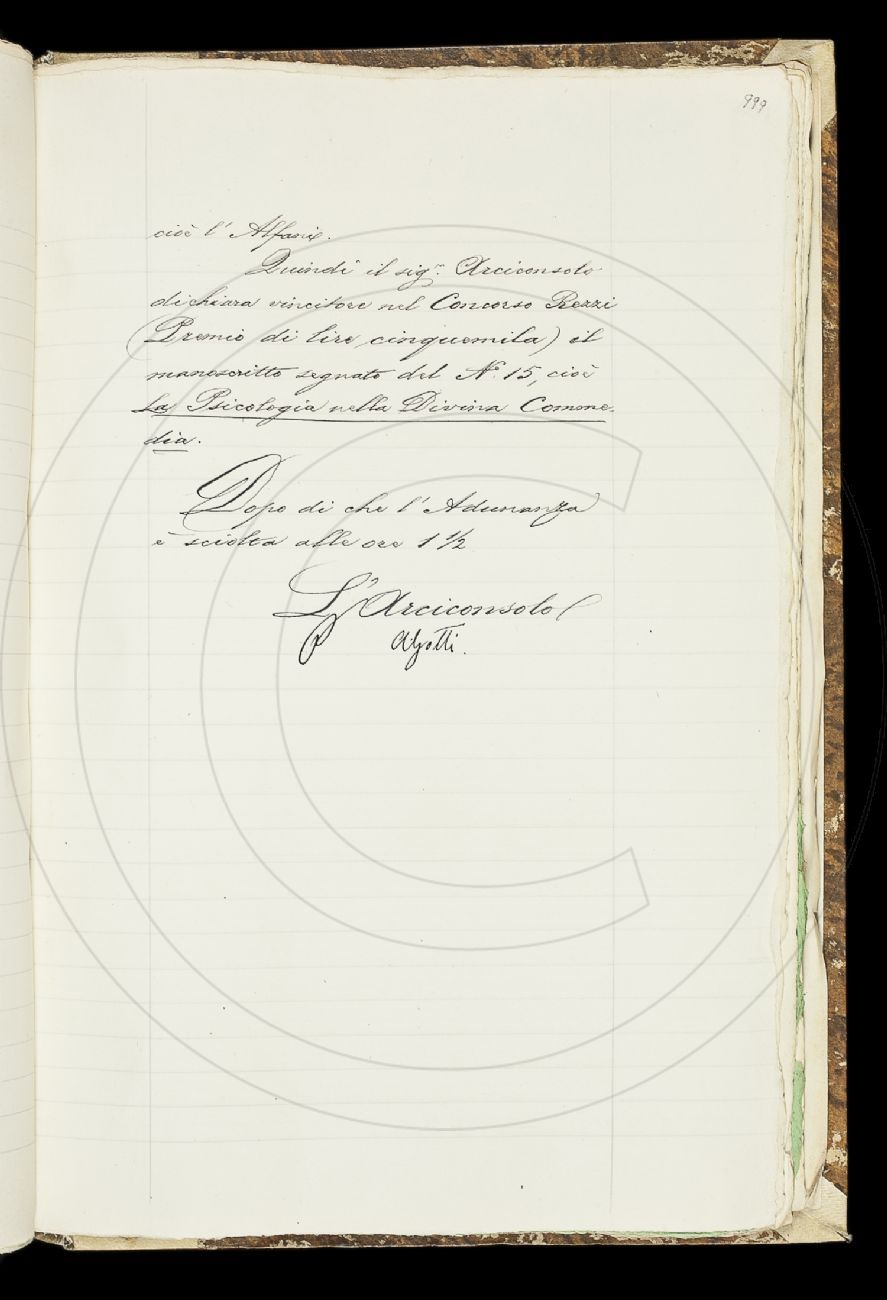 999
cioè l' Alfani.
Quindi il sigʳ. Arciconsolo
dichiara vincitore nel Concorso Rezzi
(Premio di lire cinquemila) il
manoscritto segnato del N.º 15, cioè
La Psicologia nella Divina Comme-
dia.
Dopo di che l' Adunanza
è sciolta alle ore 1 1/2
L' Arciconsolo